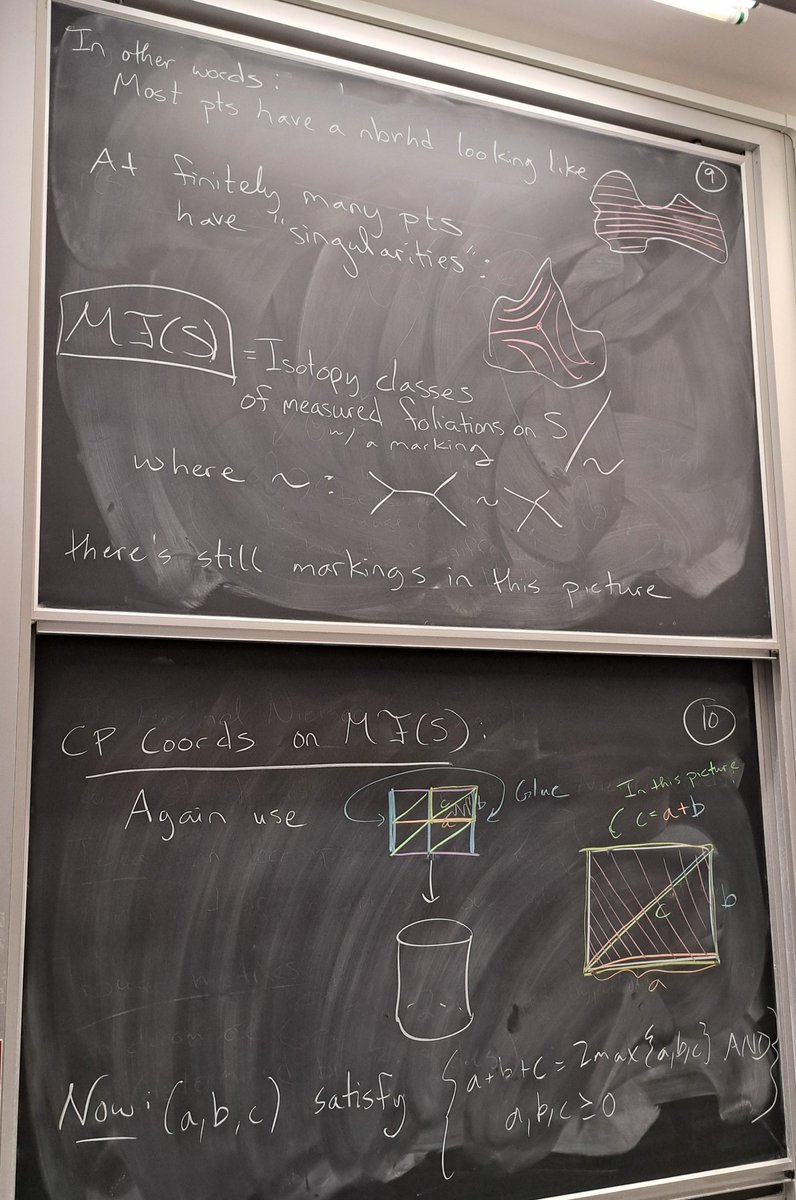 In other words:
Most pts have a nbrhd looking like
9
At finitely many pts
have "singularities":
MF(S) = Isotopy classes
of measured foliations on S / ~
w/ a marking
where ~ : ~
there's still markings in this picture
10
CP Coords on MF(S):
Again use
c b
a
Glue
In this picture
c = a+b
c
b
a
Now: (a,b,c) satisfy { a+b+c = 2max{a,b,c} AND
a,b,c ≥ 0 }